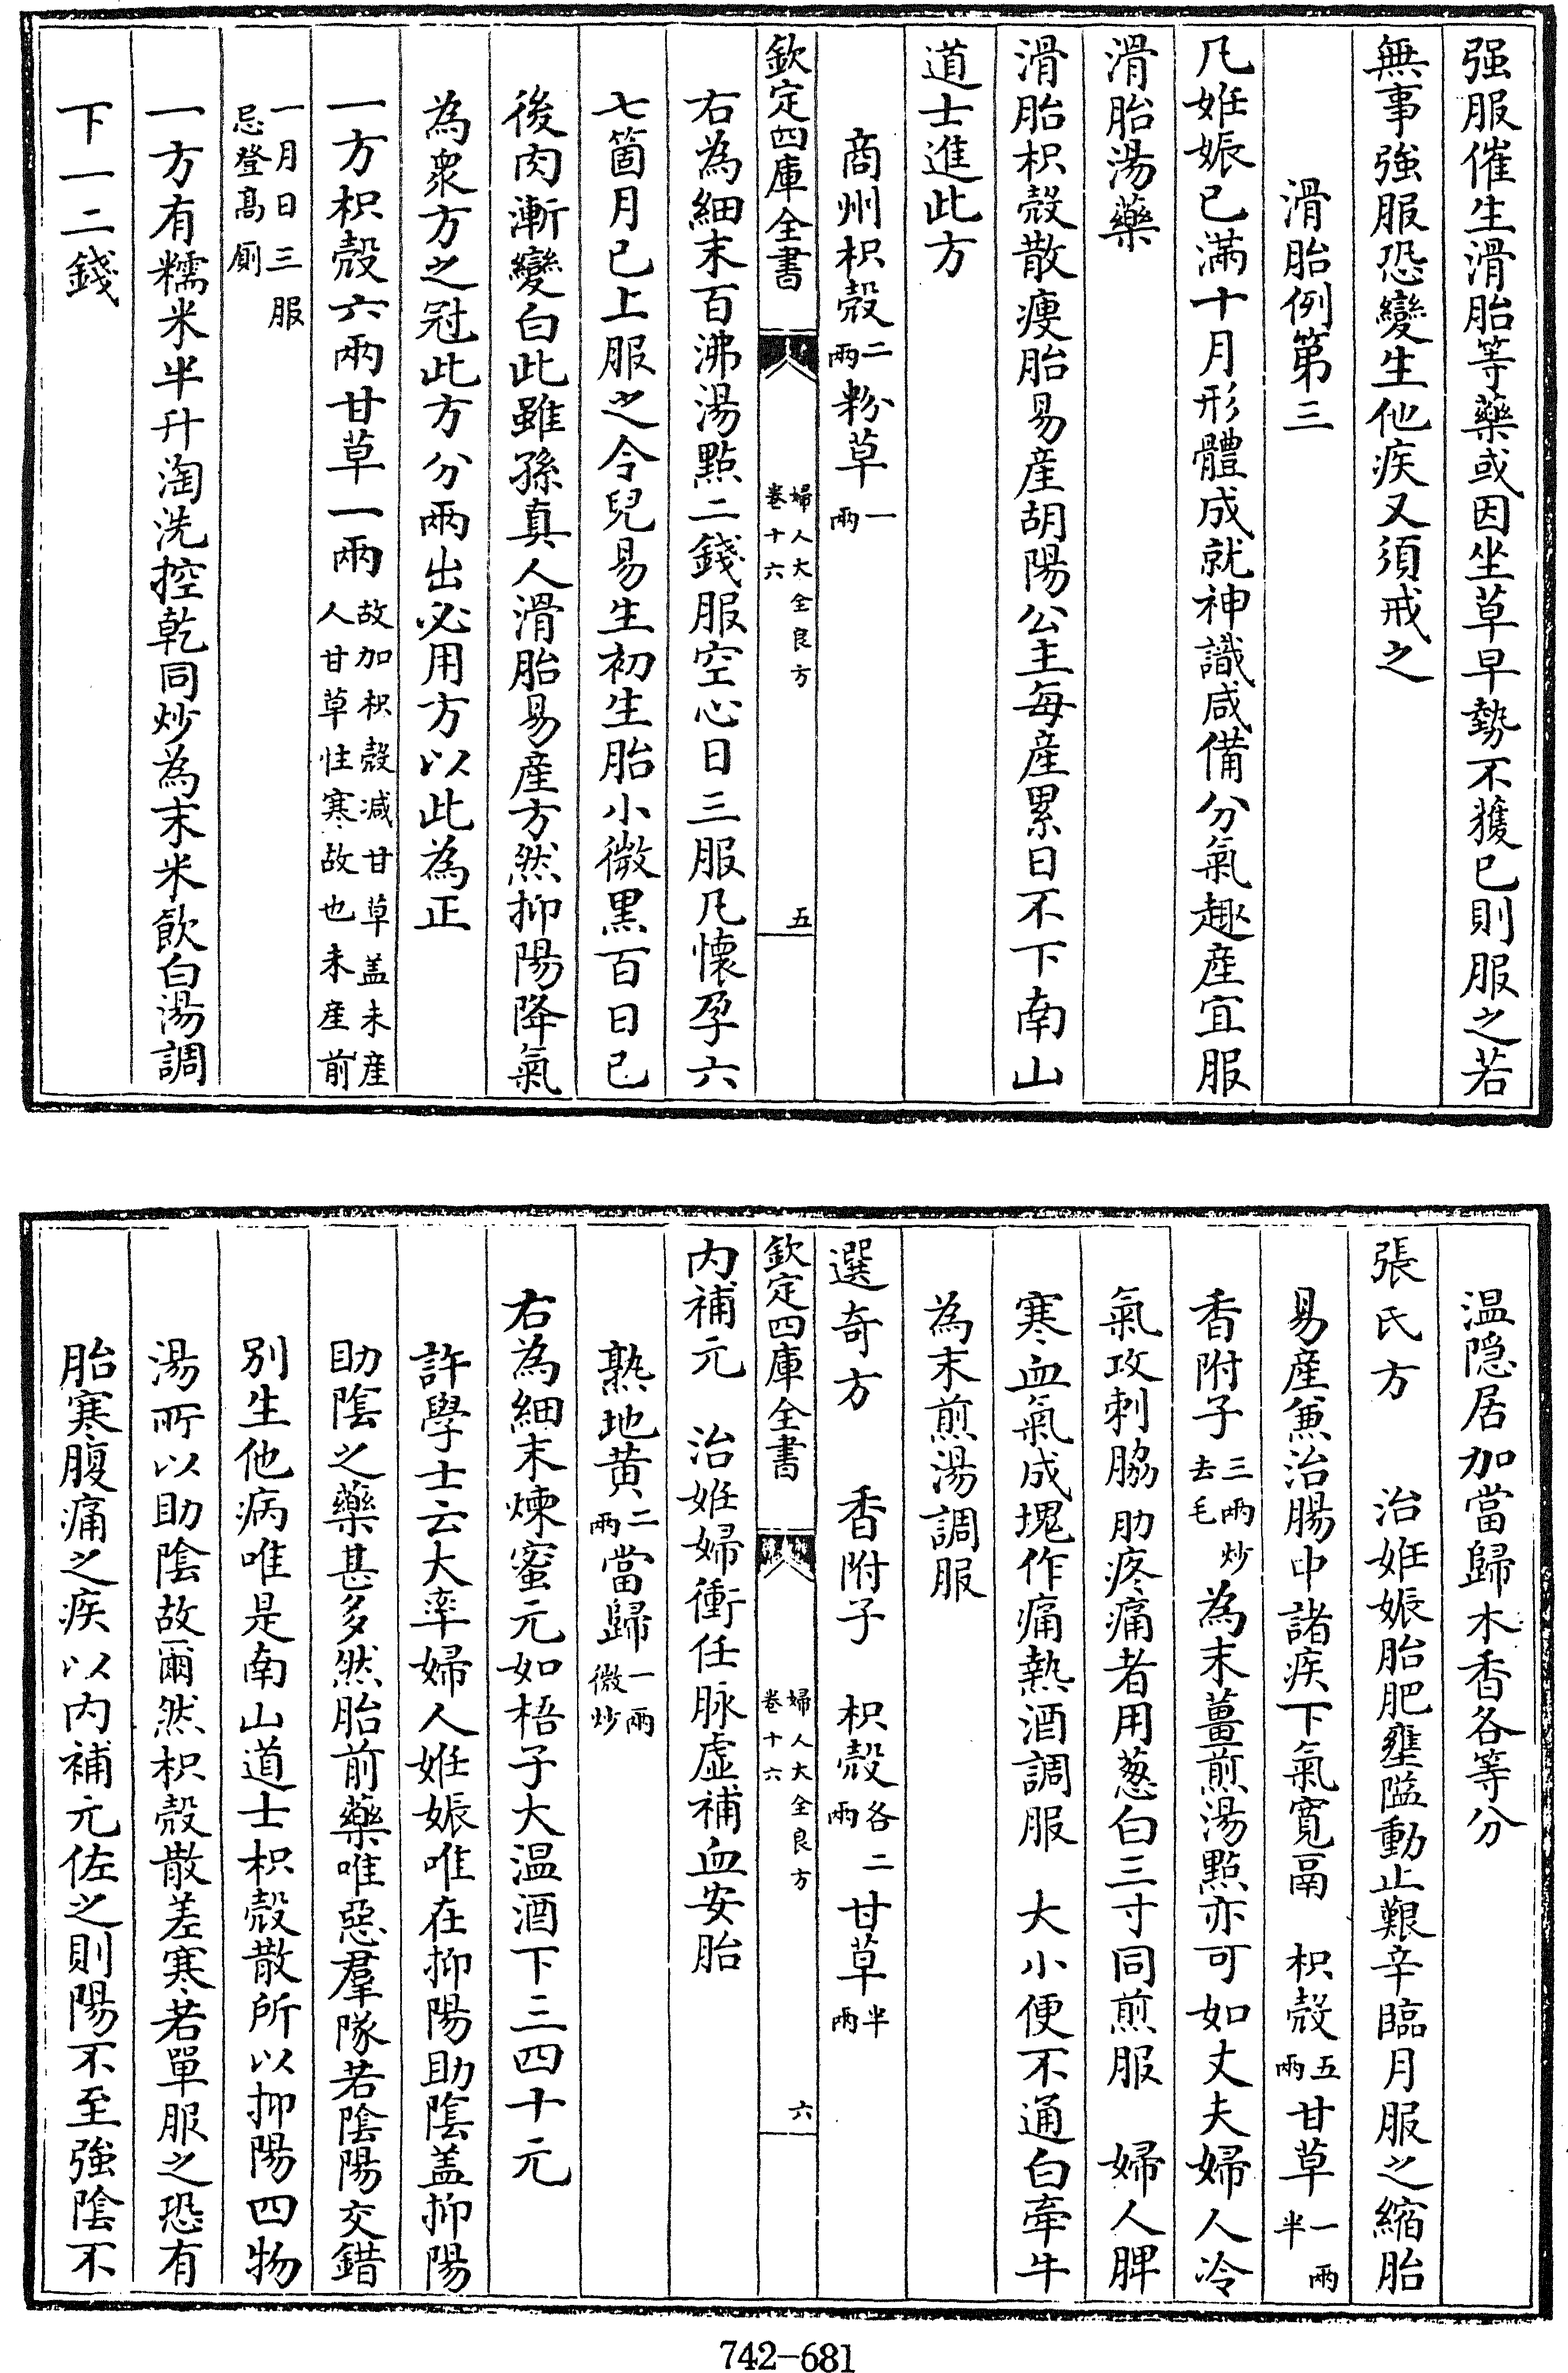 强服催生滑胎等藥或因坐草早勢不獲已則服之若
無事強服恐變生他疾又須戒之
滑胎例第三
凡姙娠已滿十月形體成就神識咸備分氣趣産宜服
滑胎湯藥
滑胎枳殼散瘦胎易産胡陽公主每産累日不下南山
道士進此方
商州枳殼二兩粉草一兩
欽定四庫全書 婦人大全良方卷十六 五
右為細末百沸湯點二錢服空心日三服凡懷孕六
七箇月已上服之令兒易生初生胎小微黑百日已
後肉漸變白此雖孫真人滑胎易産方然抑陽降氣
為衆方之冠此方分兩出必用方以此為正
一方枳殼六兩甘草一兩故加枳殼減甘草盖未産人甘草性寒故也未産前
一月日三服忌登髙厠
一方有糯米半升淘洗控乾同炒為末米飲白湯調
下一二錢
温隐居加當歸木香各等分
張氏方 治姙娠胎肥壅隘動止艱辛臨月服之縮胎
易産兼治腸中諸疾下氣寛鬲 枳殼五兩甘草一兩半
香附子三兩炒去毛為末薑煎湯㸃亦可如丈夫婦人冷
氣攻刺脇肋疼痛者用葱白三寸同煎服 婦人脾
寒血氣成塊作痛熱酒調服 大小便不通白牽牛
為末煎湯調服
選奇方 香附子 枳殼各二兩 甘草半兩
欽定四庫全書 婦人大全良方卷十六 六
内補元 治姙婦衝任脉虚補血安胎
熟地黄二兩當歸一兩微炒
右為細末煉蜜元如梧子大温酒下三四十元
許學士云大率婦人姙娠唯在抑陽助陰盖抑陽
助陰之藥甚多然胎前藥唯惡羣隊若陰陽交錯
别生他病唯是南山道士枳殼散所以抑陽四物
湯所以助陰故爾然枳殼散差寒若單服之恐有
胎寒腹痛之疾以内補元佐之則陽不至強陰不
742-681